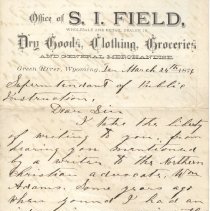 Office of S. I. FIELD,
WHOLESALE AND RETAIL DEALER IN
Dry Goods, Clothing, Groceries
AND GENERAL MERCHANDISE
Green River, Wyoming, Ter. March 24th 187
Superintendent of Public
Instruction,
Dear Sir:
I take the liberty
of writing to you, from
hearing you mentioned
by a writer to the Northern
Christian advocate, Wm
Adams. Some years ago
when young I had an